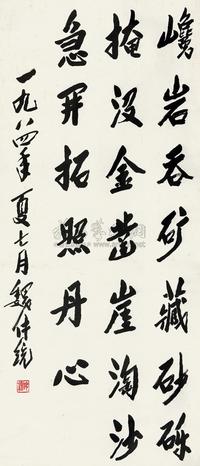 巉岩吞矿藏砂砾
掩没金齿崖淘沙
急开拓照丹心
一九八四年夏七月魏传统